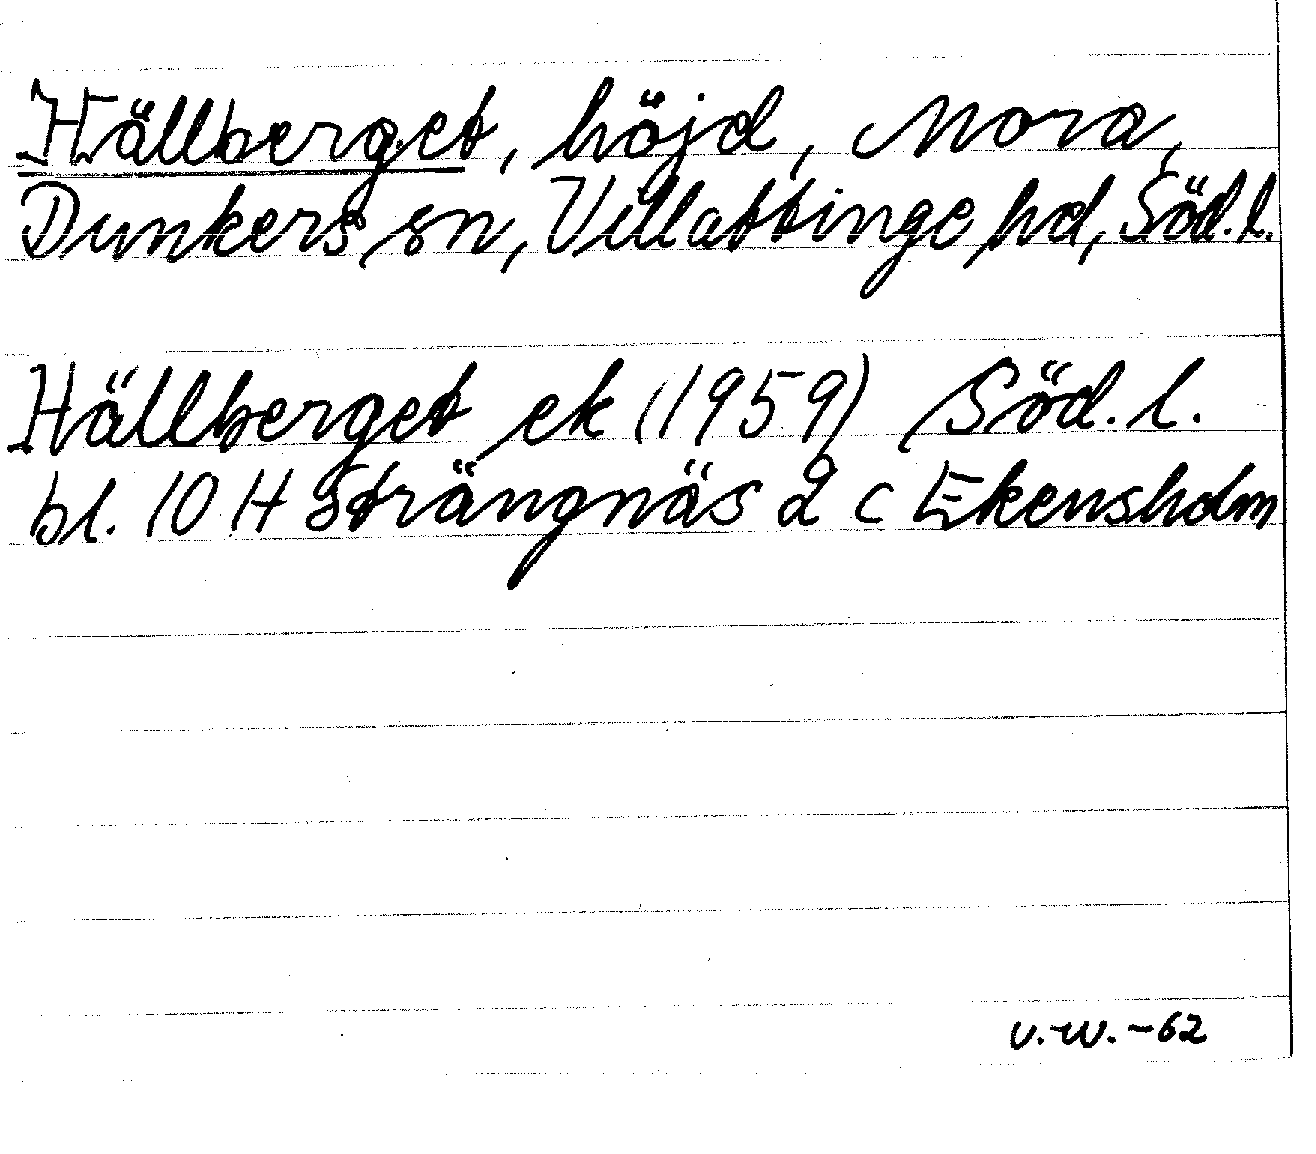 Hällberget, höjd, Mora,
Dunkers sn, Villattinge hd, Söd.l.
Hällberget ek (1959) Söd.l.
bl. 10 H Strängnäs 2 c Ekensholm
v.w. -62